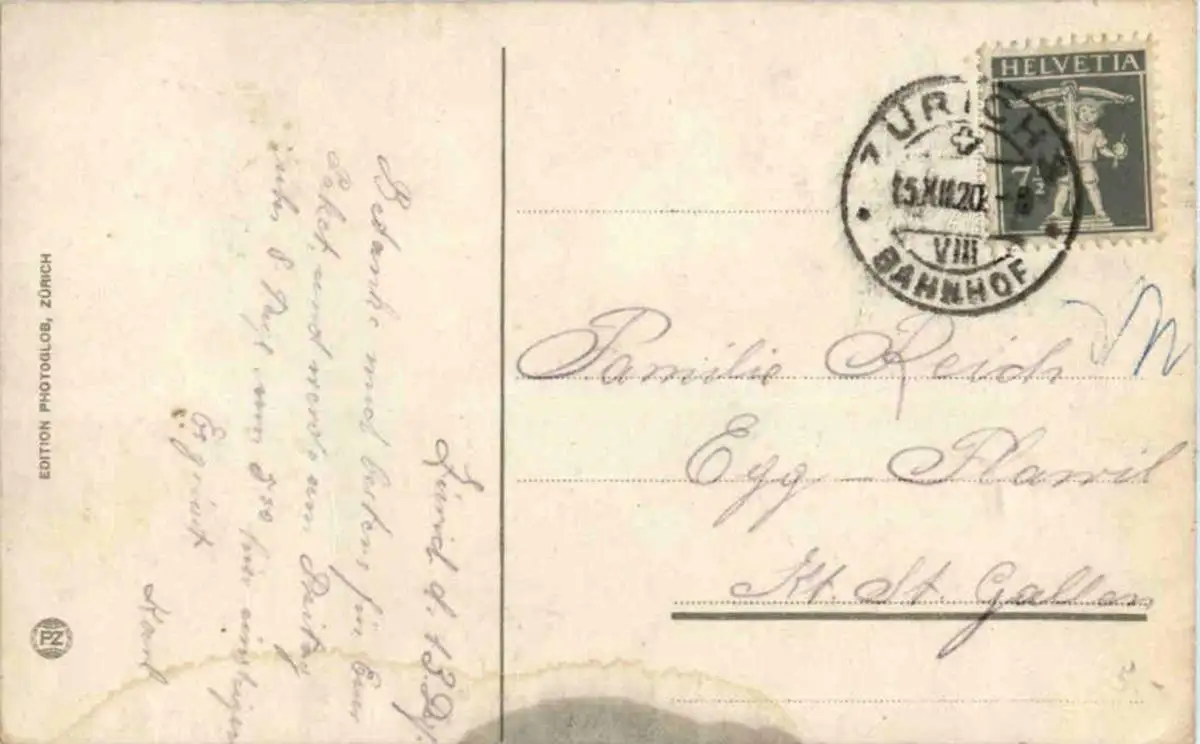 HELVETIA
7½
ZÜRICH
15.XII.20. - 8
VIII
BAHNHOF
Familie Reich
Egg - Flawil
Kt. St. Gallen
Zürich d. 13. Dz.
Bedanke mich bestens für Euer
Paket, und werde am Freitag
8. 8 30 hier einsteigen
Es grüsst
Karl
EDITION PHOTOGLOB, ZÜRICH
PZ